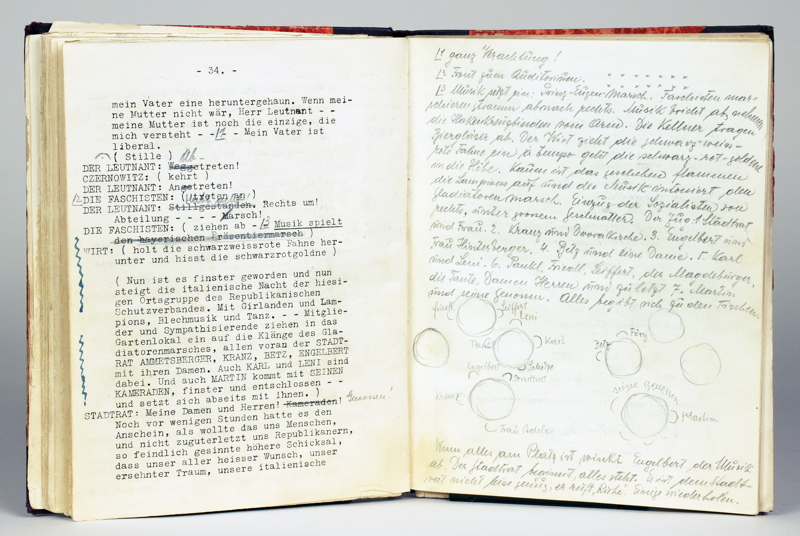 - 34. -
mein Vater eine heruntergehaun. Wenn mei-
ne Mutter nicht wär, Herr Leutnant - -
meine Mutter ist noch die einzige, die
mich versteht - - - Mein Vater ist
liberal.
( Stille ) ab-
DER LEUTNANT: Weggetreten!
CZERNOWITZ: ( kehrt )
DER LEUTNANT: Angetreten!
DIE FASCHISTEN:
DER LEUTNANT: Stillgestanden. Rechts um!
Abteilung - - - - Marsch!
DIE FASCHISTEN: ( ziehen ab - Musik spielt
den bayerischen Präsentiermarsch )
WIRT: ( holt die schwarzweissrote Fahne her-
unter und hisst die schwarzrotgoldne )
( Nun ist es finster geworden und nun
steigt die italienische Nacht der hiesi-
gen Ortsgruppe des Republikanischen
Schutzverbandes. Mit Girlanden und Lam-
pions, Blechmusik und Tanz. - - Mitglie-
der und Sympathisierende ziehen in das
Gartenlokal ein auf die Klänge des Gla-
diatorenmarsches, allen voran der STADT-
RAT AMMETSBERGER, KRANZ, BETZ, ENGELBERT
mit ihren Damen. Auch KARL und LENI sind
dabei. Und auch MARTIN kommt mit SEINEN
KAMERADEN, finster und entschlossen - -
und setzt sich abseits mit ihnen. )
STADTRAT: Meine Damen und Herren! Kameraden! Genossen!
Noch vor wenigen Stunden hatte es den
Anschein, als wollte das uns Menschen,
und nicht zuguterletzt uns Republikanern,
so feindlich gesinnte höhere Schicksal,
dass unser aller heisser Wunsch, unser
ersehnter Traum, unsere italienische
ganz Verachtung!
Front zum Auditorium.
Musik setzt ein: Prinz-Eugen-Marsch. Faschisten mar-
schieren stramm abnach rechts. Musik bricht ab, nehmen
die Hakenkreuzbinden vom Arm. Die Kellner tragen
Biergläser ab. Der Wirt zieht die schwarz-weiss-
rote Fahne ein, à tempo geht die schwarz-rot-goldene
in die Höhe. Kaum ist das geschehen flammen
die Lampions auf und die Musik intoniert den
Gladiatoren marsch. Einzug der Sozialisten von
rechts, unter grossem Geschnatter. Der Zug: 1. Stadtrat
und Frau. 2. Kranz und Dvorakische. 3. Engelbert und
Frau Hinterberger. 4. Betz und eine Dame. 5. Karl
und Leni. 6. Rankl, Friedl, Seiffert, der Magdeburger,
die Tante, Damen Herren und zuletzt 7. Martin
und seine Genossen. Alles begibt sich zu den Tischen.
Seiffert
Leni
Karl
Engelbert
Stadtrat
Kranz
Frau Adele
Betz
seine Genossen
Martin
Wenn alles am Platz ist winkt Engelbert der Musik
ab. Der Stadtrat beginnt, alles steht. Wird dem Stadt-
rat nicht leise genug, er ruft "Ruhe". Einige niederholen.